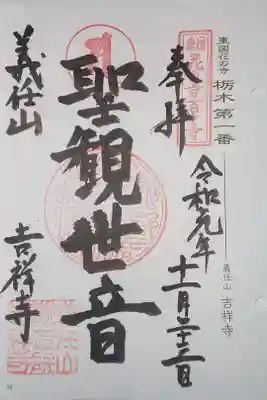 東国花の寺
栃木第一番
義任山 吉祥寺
奉拝
令和元年
十一月二十三日
聖観世音
義任山
吉祥寺